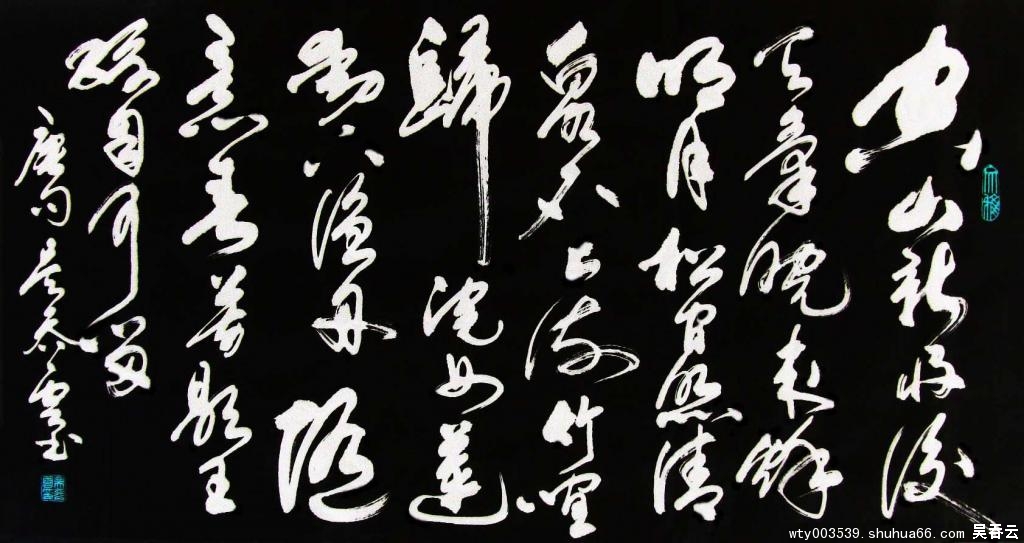 空山新雨後
天氣晚來秋
明月松間照清
泉石上流竹喧
歸浣女蓮
動下漁舟隨
意春芳歇王
孫自可留
唐句吴春雲书
wty003539.shuhua66.com 吴春云